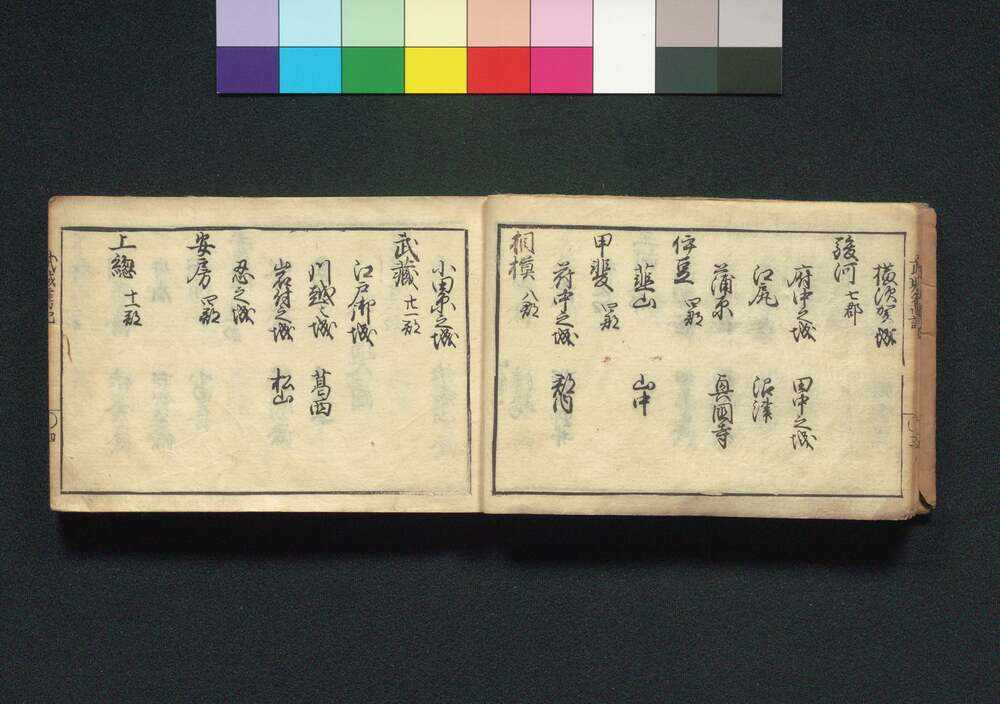 横須賀城
駿河 七郡
府中之城 田中之城
江尻 沼津
蒲原 真國寺
伊豆 四郡
韮山 山中
甲斐 四郡
府中之城 郡内
相模 八郡
小田原之城
武藏 廿一郡
江戸御城
川越之城 葛西
岩付之城 松山
忍之城
安房 四郡
上總 十一郡